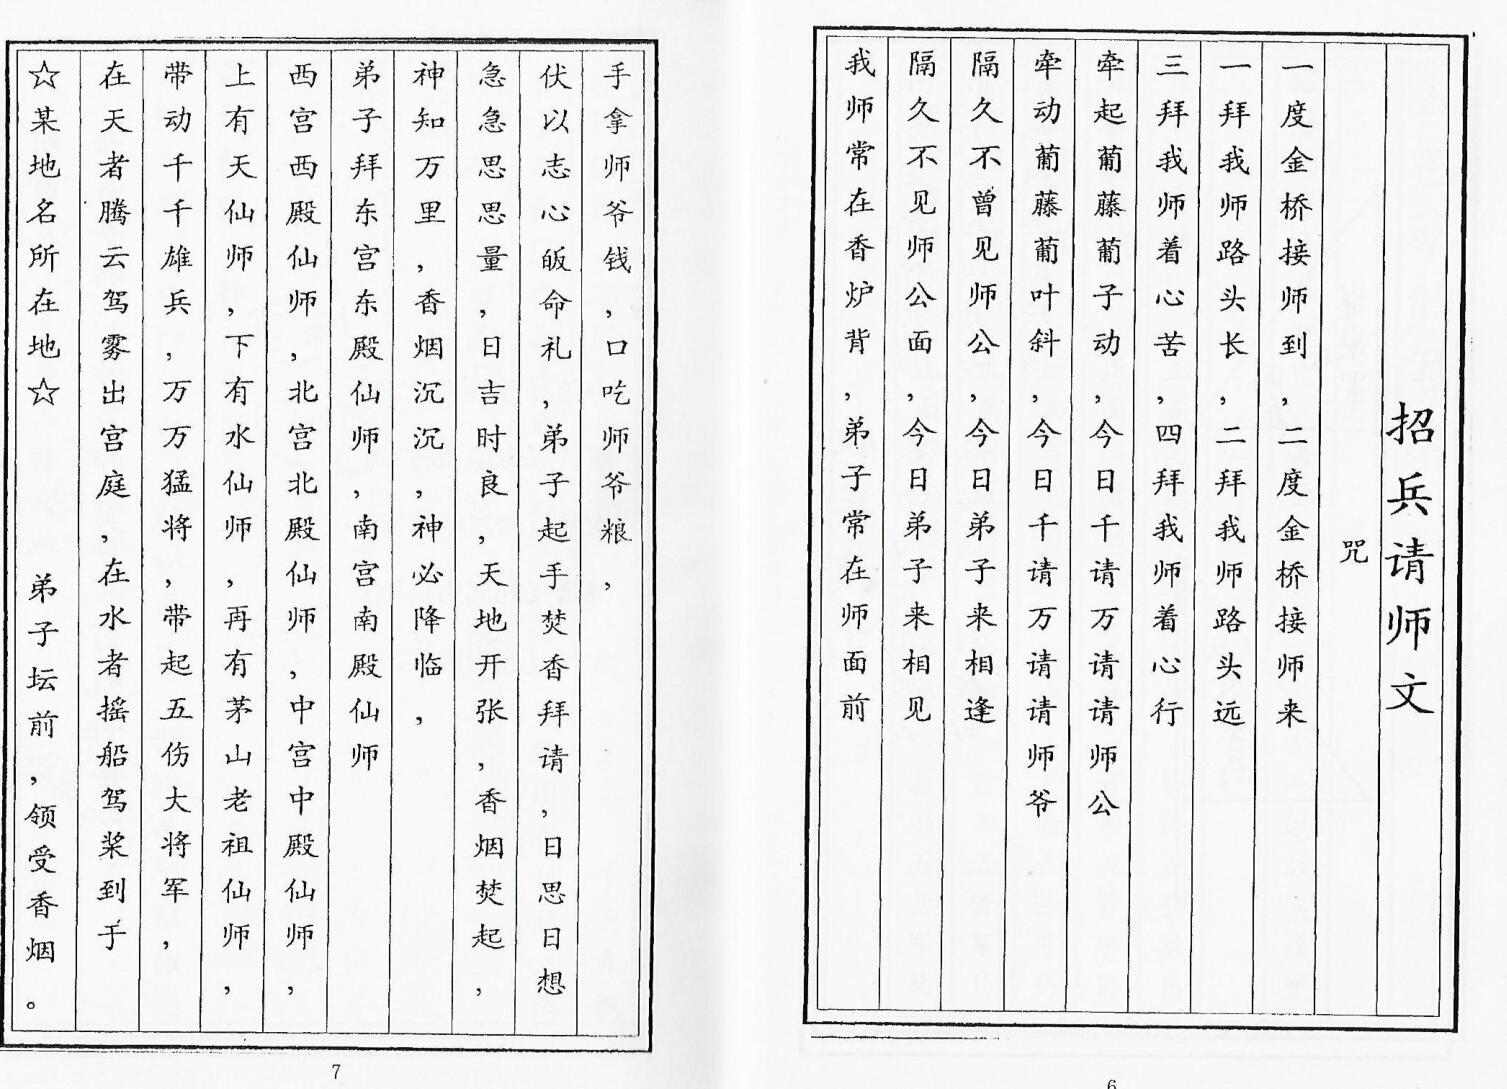 招兵请师文
咒
一度金桥接师到,二度金桥接师来
一拜我师路头长,二拜我师路头远
三拜我师着心苦,四拜我师着心行
牵起葡藤葡子动,今日千请万请请师公
牵动葡藤葡叶斜,今日千请万请请师爷
隔久不曾见师公,今日弟子来相逢
隔久不见师公面,今日弟子来相见
我师常在香炉背,弟子常在师面前
6
手拿师爷钱,口吃师爷粮,
伏以志心皈命礼,弟子起手焚香拜请,日思日想
急急思思量,日吉时良,天地开张,香烟焚起,
神知万里,香烟沉沉,神必降临,
弟子拜东宫东殿仙师,南宫南殿仙师
西宫西殿仙师,北宫北殿仙师,中宫中殿仙师,
上有天仙师,下有水仙师,再有茅山老祖仙师,
带动千千雄兵,万万猛将,带起五伤大将军,
在天者腾云驾雾出宫庭,在水者摇船驾桨到于
☆某地名所在地☆ 弟子坛前,领受香烟。
7